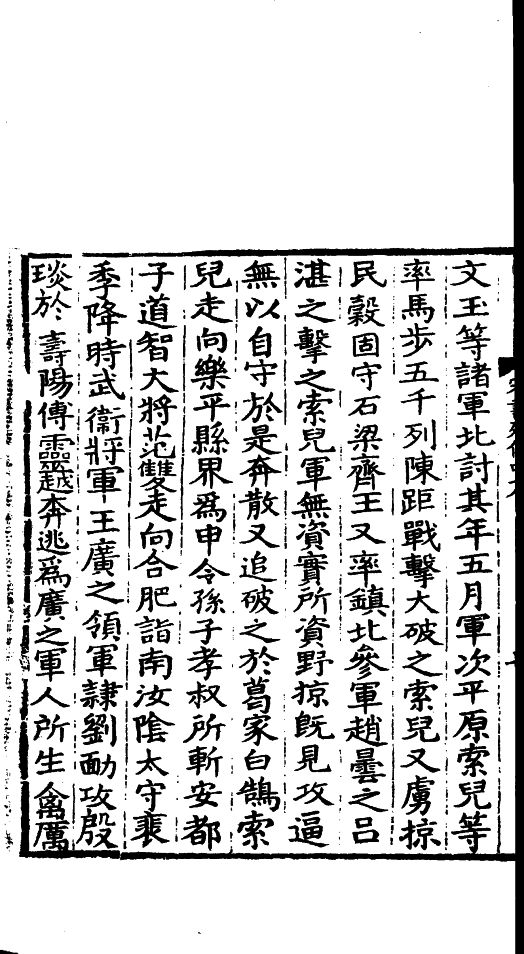 文玉等諸軍北討其年五月軍次平原索兒等
率馬步五千列陳距戰擊大破之索兒又虜掠
民穀固守石梁齊王又率鎮北參軍趙曇之吕
湛之擊之索兒軍無資實所資野掠旣見攻逼
無以自守於是奔散又追破之於葛家白鵠索
兒走向樂平縣界爲申令孫子孝叔所斬安都
子道智大將范雙走向合肥詣南汝陰太守裴
季降時武衞將軍王廣之領軍隷劉勔攻殷
琰於壽陽傅靈越奔逃爲廣之軍人所生禽厲